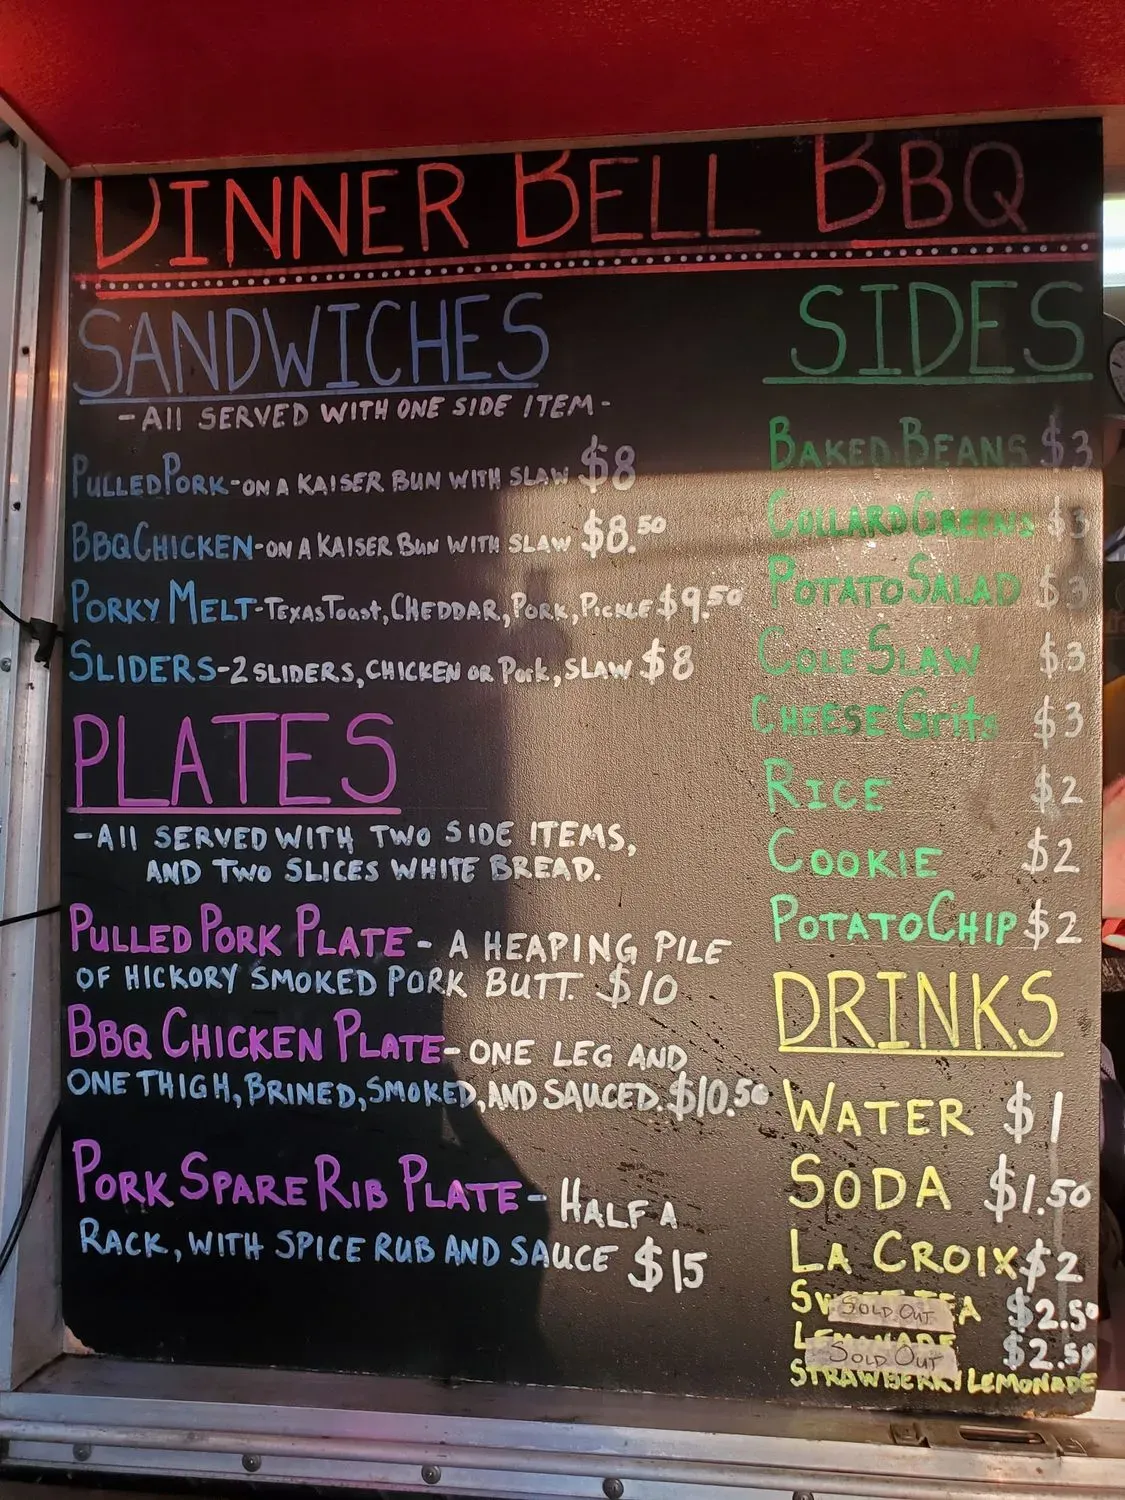 DINNER BELL BBQ
SANDWICHES
-All SERVED WITH ONE SIDE ITEM-
PULLED PORK-ON A KAISER BUN WITH SLAW $8
BBQ CHICKEN-ON A KAISER BUN WITH SLAW $8.50
PORKY MELT-TEXAS TOAST, CHEDDAR, PORK, PICKLE $9.50
SLIDERS-2 SLIDERS, CHICKEN OR PORK, SLAW $8
PLATES
-All SERVED WITH TWO SIDE ITEMS,
AND TWO SLICES WHITE BREAD.
PULLED PORK PLATE- A HEAPING PILE
OF HICKORY SMOKED PORK BUTT. $10
BBQ CHICKEN PLATE- ONE LEG AND
ONE THIGH, BRINED, SMOKED, AND SAUCED. $10.50
PORK SPARE RIB PLATE- HALF A
RACK, WITH SPICE RUB AND SAUCE $15
SIDES
BAKED BEANS $3
COLLARD GREENS $3
POTATO SALAD $3
COLE SLAW $3
CHEESE Grits $3
RICE $2
COOKIE $2
POTATO CHIP $2
DRINKS
WATER $1
SODA $1.50
LA CROIX $2
SWEET TEA $2.50
SOLD OUT
LEMONADE $2.50
SOLD OUT
STRAWBERRY LEMONADE